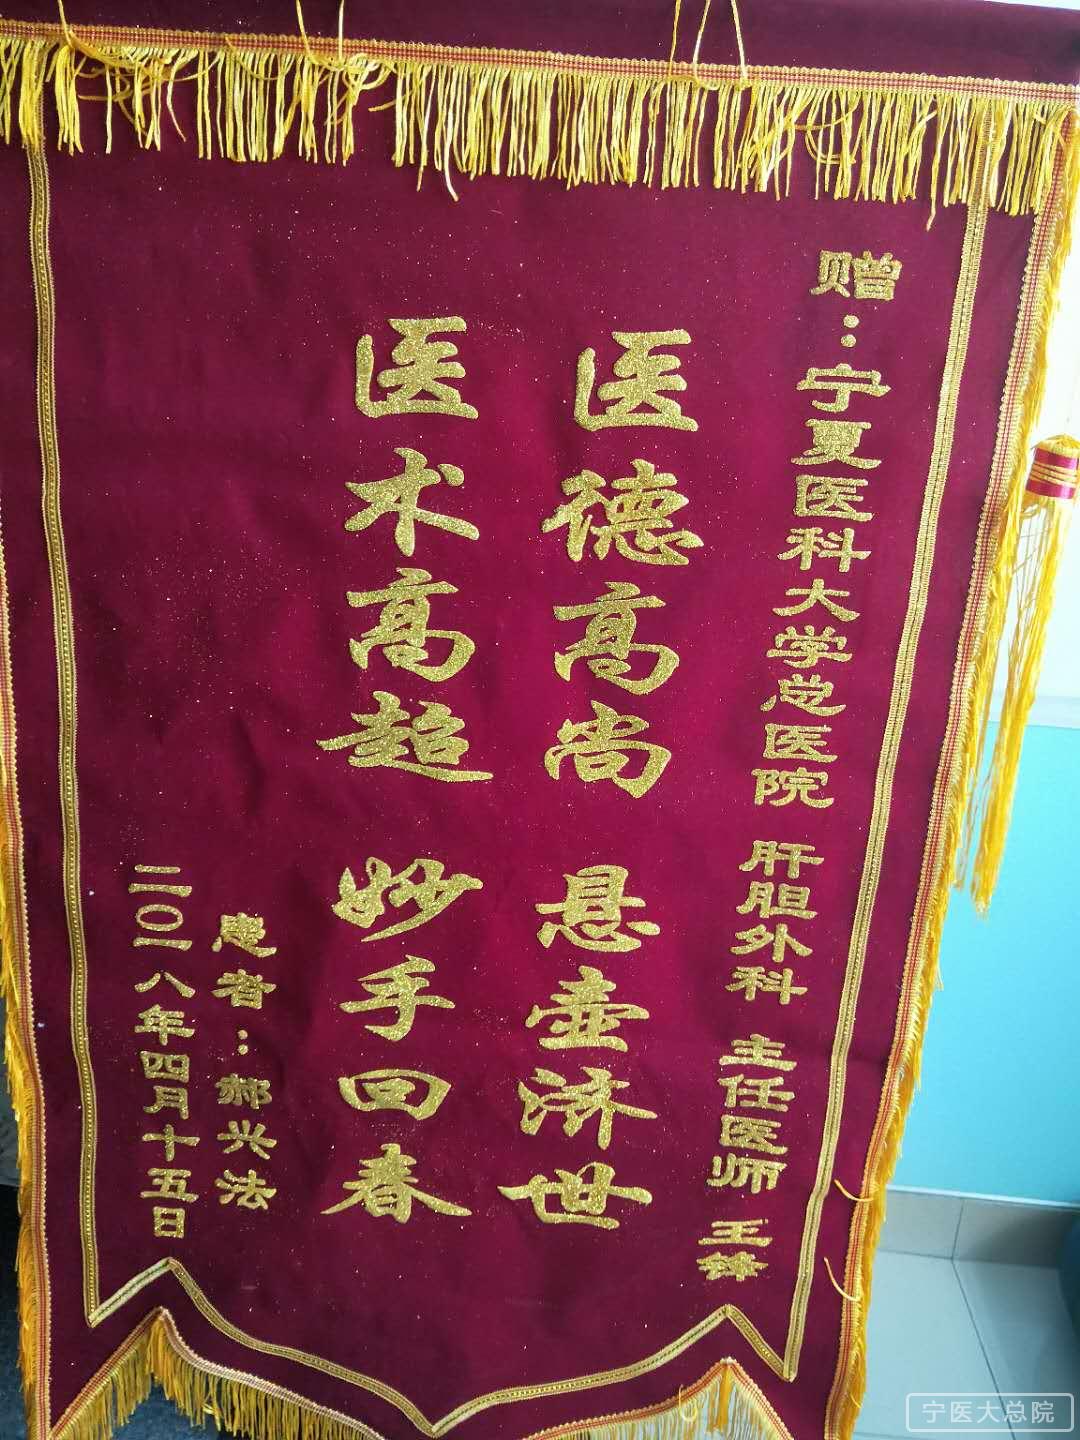 赠：宁夏医科大学总医院 肝胆外科 主任医师 王锋
医德高尚 悬壶济世
医术高超 妙手回春
患者：郝兴法
二〇一八年四月十五日
宁医大总院